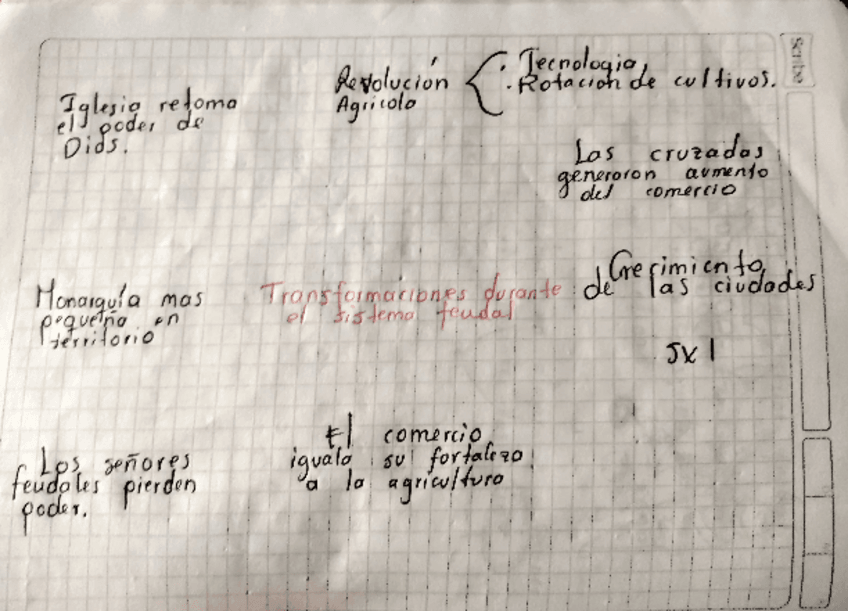 Iglesia retoma
el poder de
Dios.
Revolución
Agricola
· Tecnologia,
· Rotacion de cultivos.
Scribe
Las cruzadas
generaron aumento
del comercio
Monarquía mas
pequeña en
territorio
Transformaciones durante
el sistema feudal
Crecimiento
de las ciudades
SXI
Los señores
feudales pierden
poder.
El comercio
iguala su fortaleza
a la agricultura